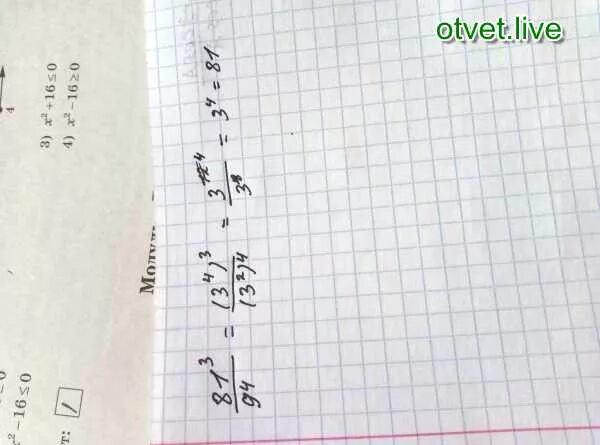 otvet.live
3) x² + 16 ≤ 0
4) x² − 16 ≥ 0
4
x² − 16 ≤ 0
т: /
81³/9⁴ = (3⁴)³/(3²)⁴ = 3¹²⁴/3⁸ = 3⁴ = 81